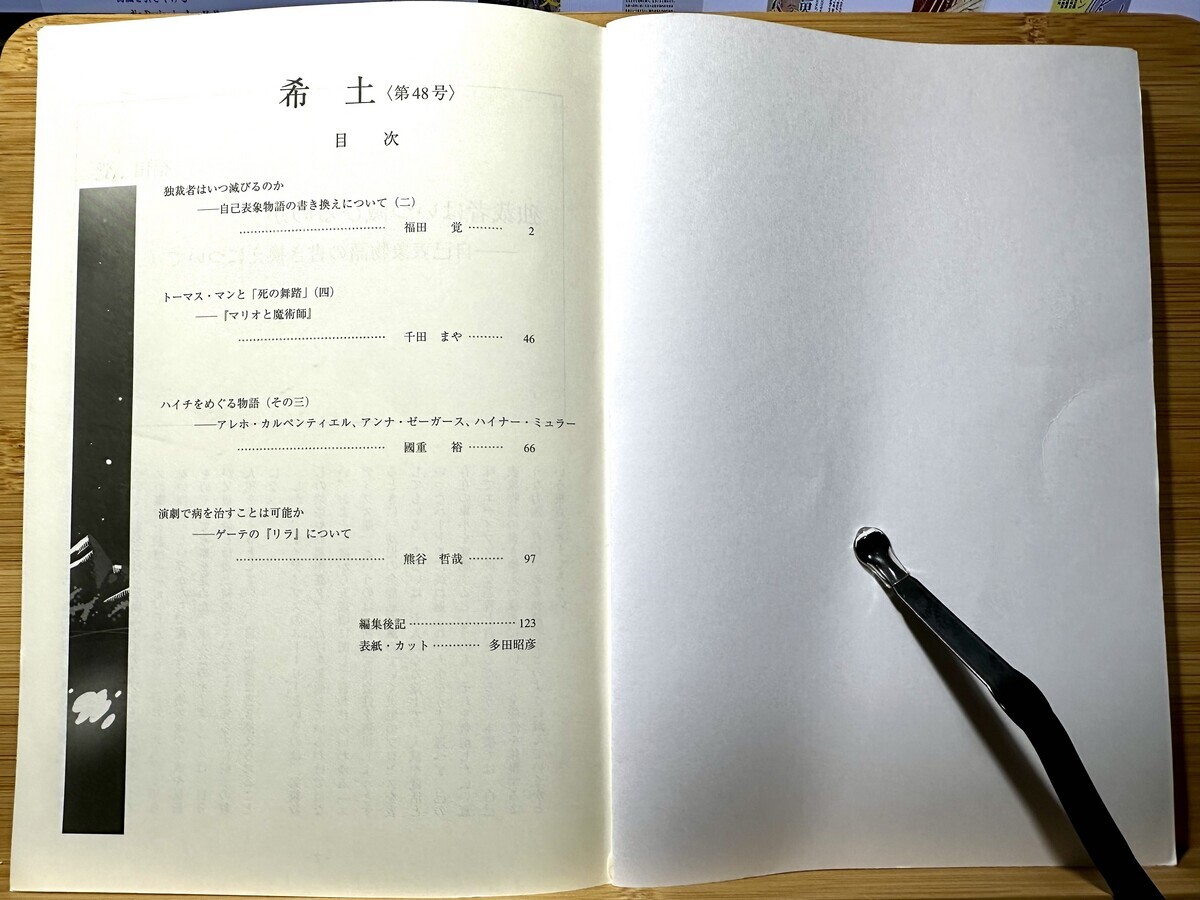 希 土〈第48号〉
目 次
独裁者はいつ滅びるのか
――自己表象物語の書き換えについて（二）
…………………………………… 福田 覚 ……… 2
トーマス・マンと「死の舞踏」（四）
――『マリオと魔術師』
…………………………………… 千田 まや ……… 46
ハイチをめぐる物語（その三）
――アレホ・カルペンティエル、アンナ・ゼーガース、ハイナー・ミュラー
…………………………………… 國重 裕 ……… 66
演劇で病を治すことは可能か
――ゲーテの『リラ』について
…………………………………… 熊谷 哲哉 ……… 97
編集後記 ……………………… 123
表紙・カット ………… 多田昭彦